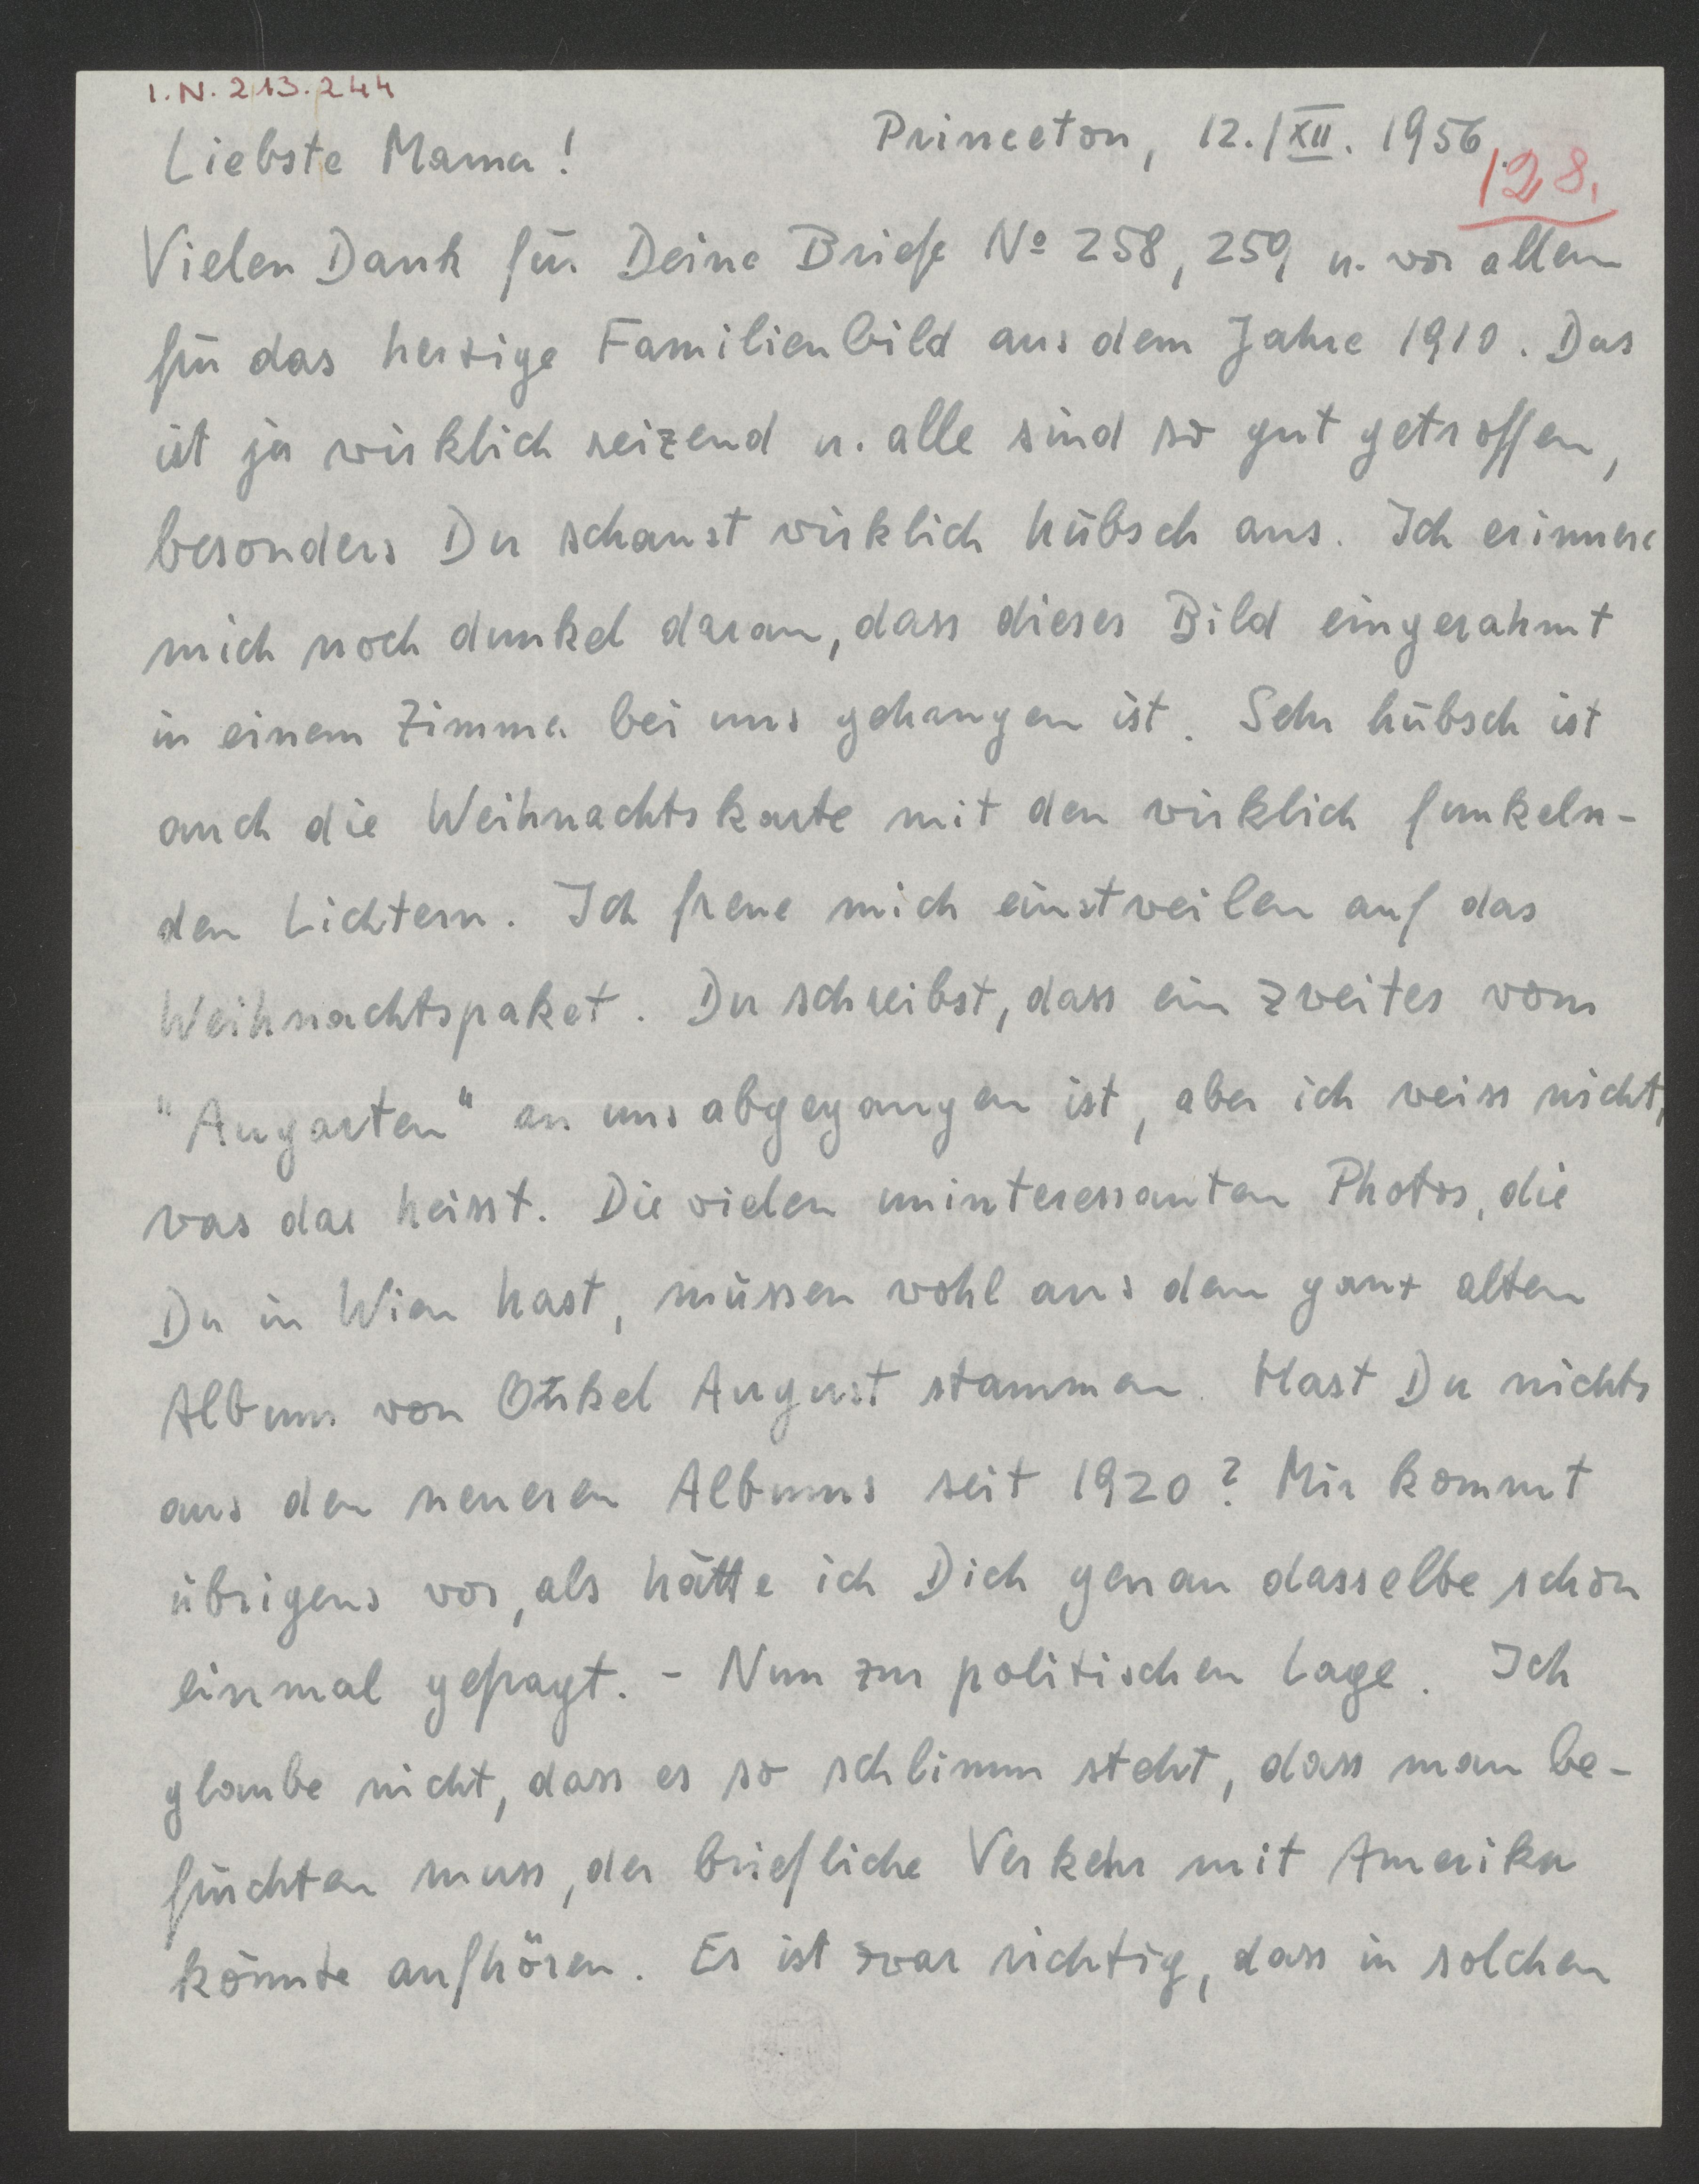 I.N. 213.244
Liebste Mama! Princeton, 12./XII. 1956.
128.
Vielen Dank für Deine Briefe No 258, 259 u. vor allem
für das herzige Familienbild aus dem Jahre 1910. Das
ist ja wirklich reizend u. alle sind so gut getroffen,
besonders Du schaust wirklich hübsch aus. Ich erinnere
mich noch dunkel daran, dass dieses Bild eingerahmt
in einem Zimmer bei uns gehangen ist. Sehr hübsch ist
auch die Weihnachtskarte mit den wirklich funkeln-
den Lichtern. Ich freue mich einstweilen auf das
Weihnachtspaket. Du schreibst, dass ein zweites vom
"Augarten" an uns abgegangen ist, aber ich weiss nicht,
was das heisst. Die vielen uninteressanten Photos, die
Du in Wien hast, müssen wohl aus dem ganz alten
Album von Onkel August stammen. Hast Du nichts
aus den neueren Albums seit 1920? Mir kommt
übrigens vor, als hätte ich Dich genau dasselbe schon
einmal gefragt. - Nun zur politischen Lage. Ich
glaube nicht, dass es so schlimm steht, dass man be-
fürchten muss, der briefliche Verkehr mit Amerika
könnte aufhören. Es ist zwar richtig, dass in solchen